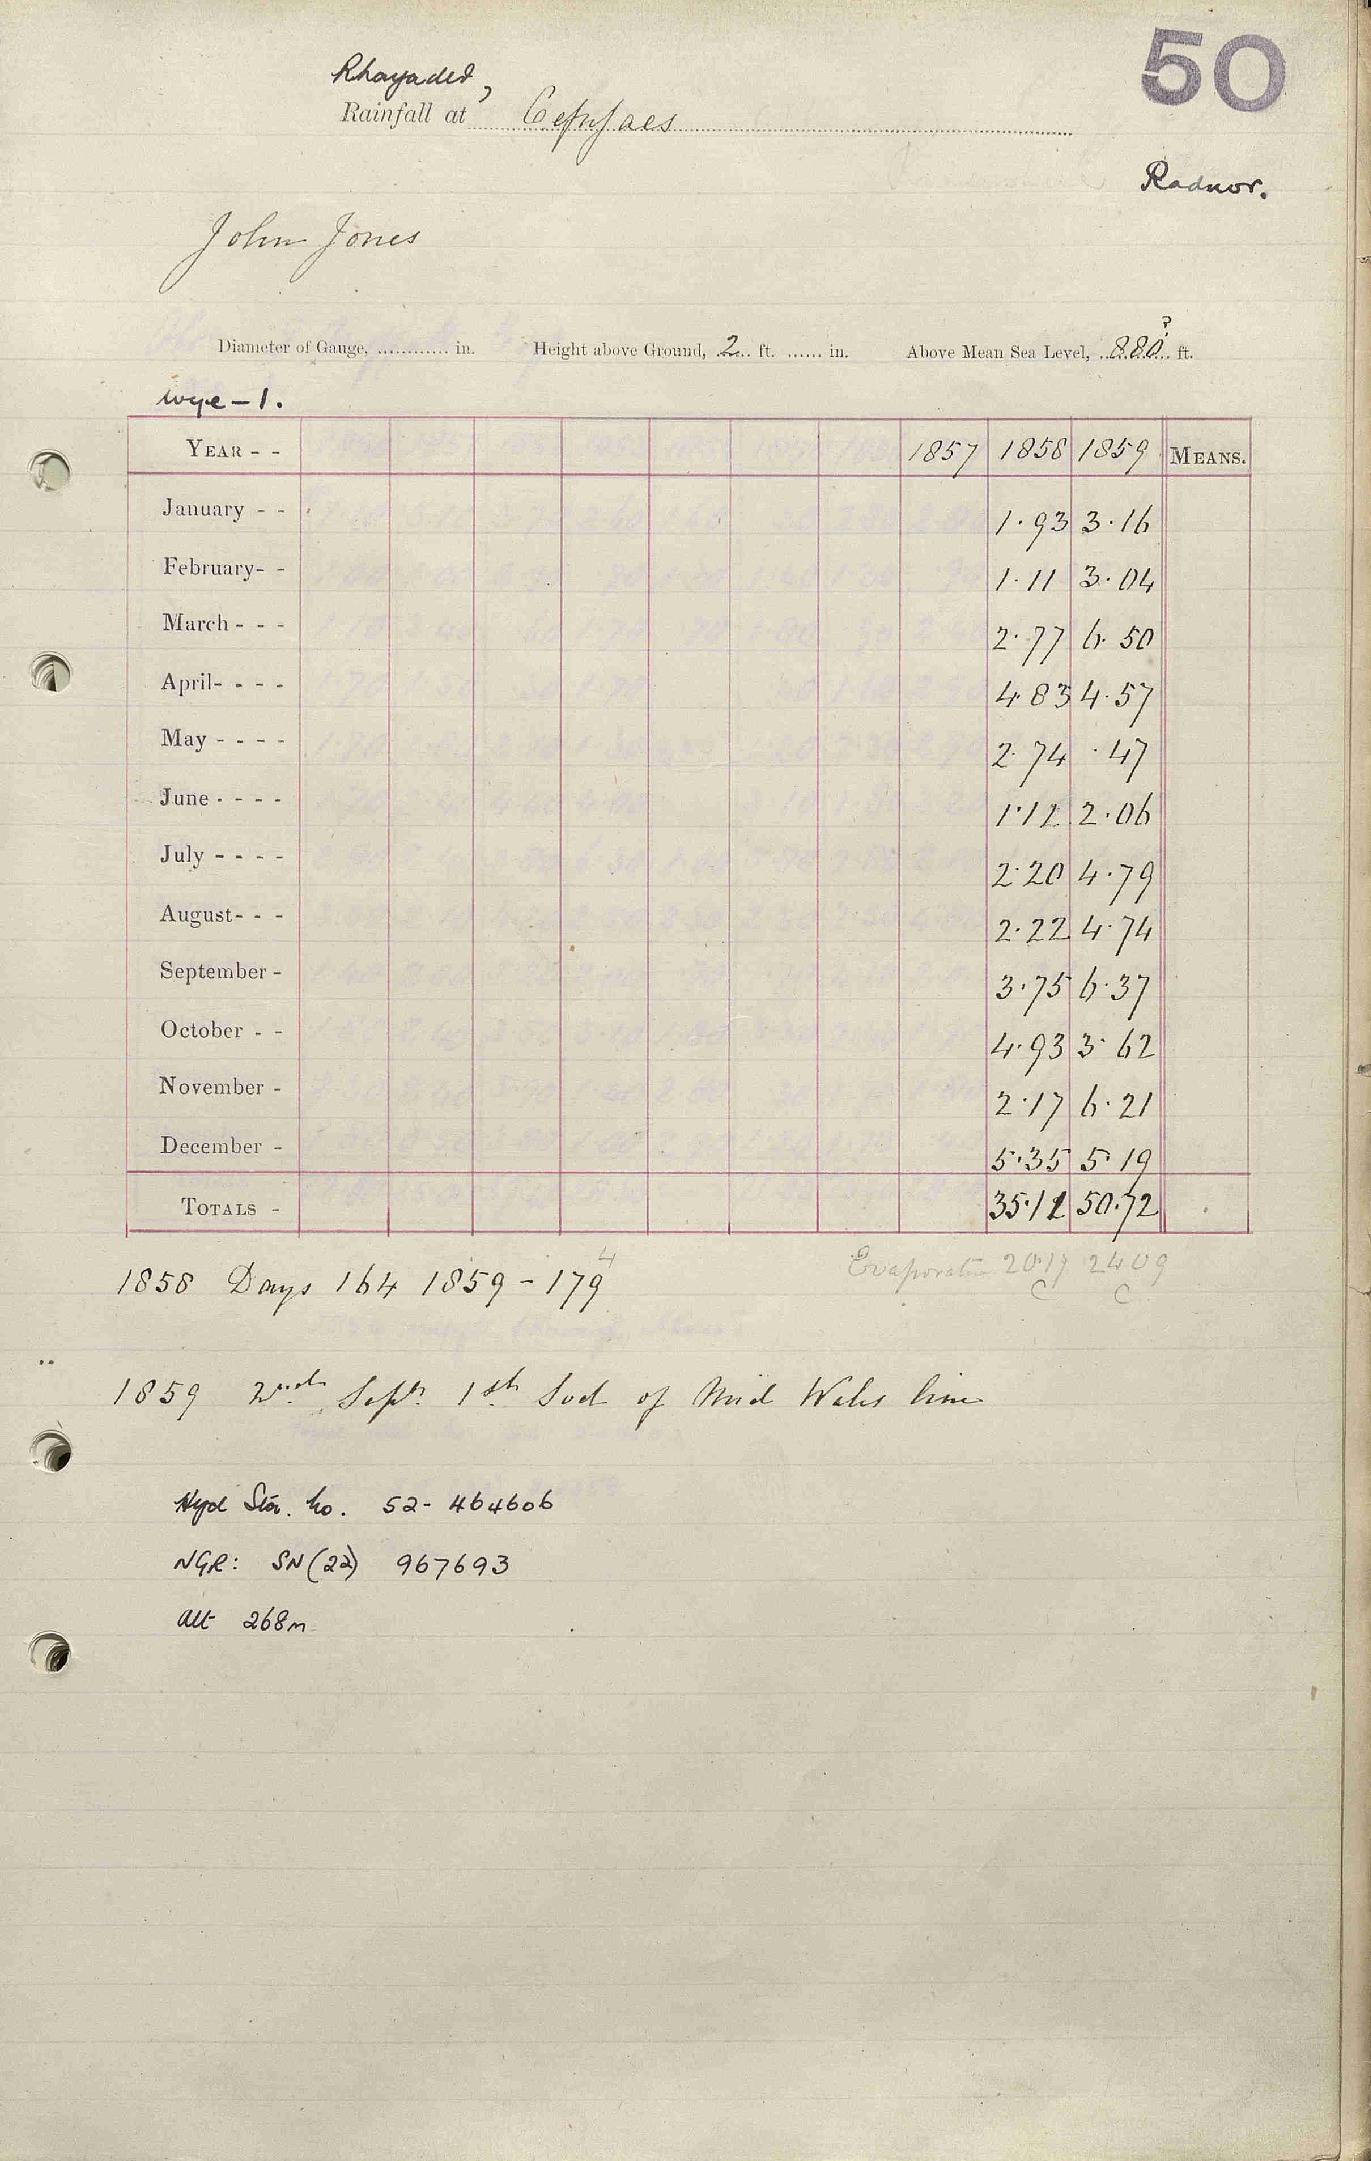 50
Rhayader,
Rainfall at Cefnfaes
Radnor.
John Jones
Diameter of Gauge, ............ in. Height above Ground, 2 ft. ...... in. Above Mean Sea Level, 880? ft.
Wye - 1.
YEAR - - 1857 1858 1859 MEANS.
January - - 1.93 3.16
February- - 1.11 3.04
March - - - 2.77 6.50
April- - - - 4.83 4.57
May - - - - 2.74 .47
June - - - - 1.12 2.06
July - - - - 2.20 4.79
August- - - 2.22 4.74
September - 3.75 6.37
October - - 4.93 3.62
November - 2.17 6.21
December - 5.35 5.19
TOTALS - 35.12 50.72
Evaporation 20.17 24.09
C C
1858 Days 164 1859 - 179 4
1859 2nd Sept. 1st Sod of Mid Wales line
Hyd Stn. No. 52- 464606
NGR: SN (22) 967693
Alt 268m